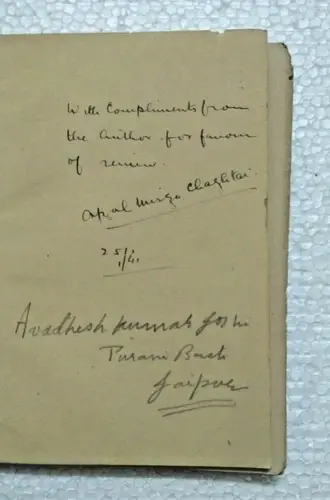 With Compliments from
the author for favour
of review.
Afzal Mirza Chaghtai
25/4.
Avadhesh kumar Joshi
Purani Basti
Jaipur